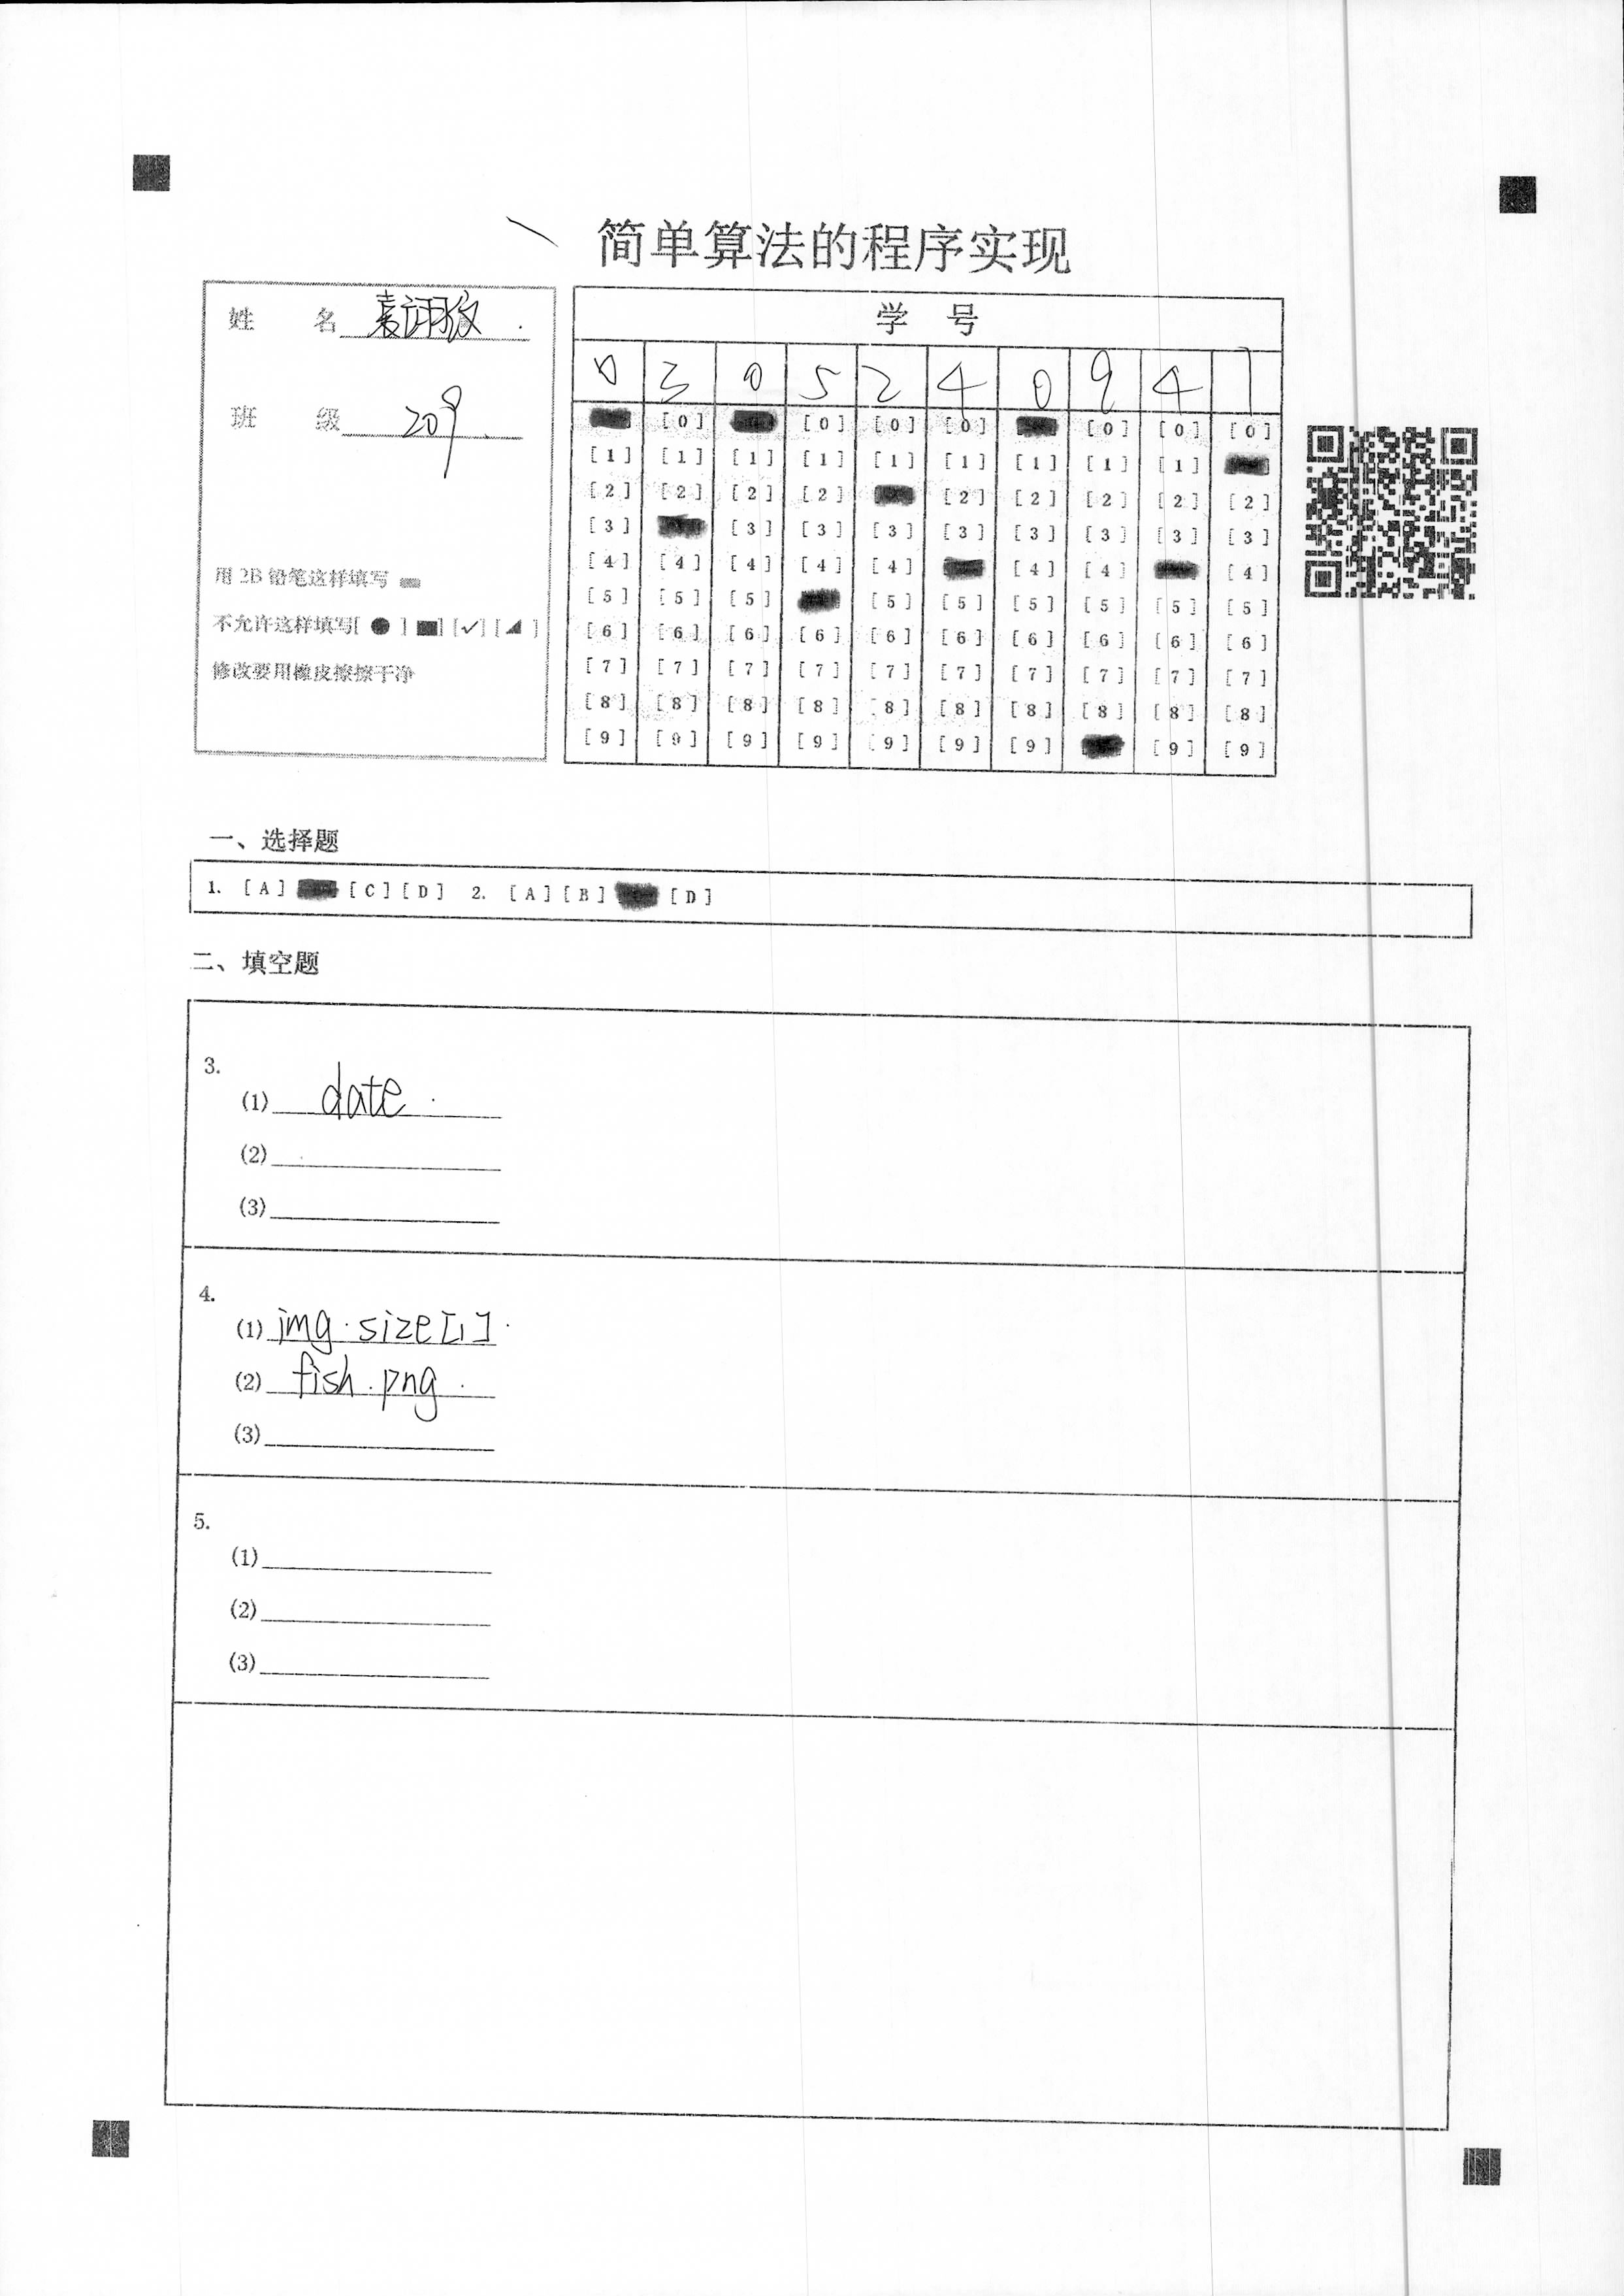 简单算法的程序实现
姓 名
班 级 209
用 2B 铅笔这样填写
不允许这样填写[ ● ] [■] [✓] [◢ ]
修改要用橡皮擦擦干净
学 号
0 3 0 5 2 4 0 9 4 1
[0] [0] [0] [0] [0] [0] [0]
[1] [1] [1] [1] [1] [1] [1] [1] [1]
[2] [2] [2] [2] [2] [2] [2] [2] [2]
[3] [3] [3] [3] [3] [3] [3] [3] [3]
[4] [4] [4] [4] [4] [4] [4] [4]
[5] [5] [5] [5] [5] [5] [5] [5] [5]
[6] [6] [6] [6] [6] [6] [6] [6] [6] [6]
[7] [7] [7] [7] [7] [7] [7] [7] [7] [7]
[8] [8] [8] [8] [8] [8] [8] [8] [8] [8]
[9] [9] [9] [9] [9] [9] [9] [9] [9]
一、选择题
1. [A] [C] [D] 2. [A] [B] [D]
二、填空题
3.
(1) date
(2)
(3)
4.
(1) img.size[1]
(2) fish.png
(3)
5.
(1)
(2)
(3)